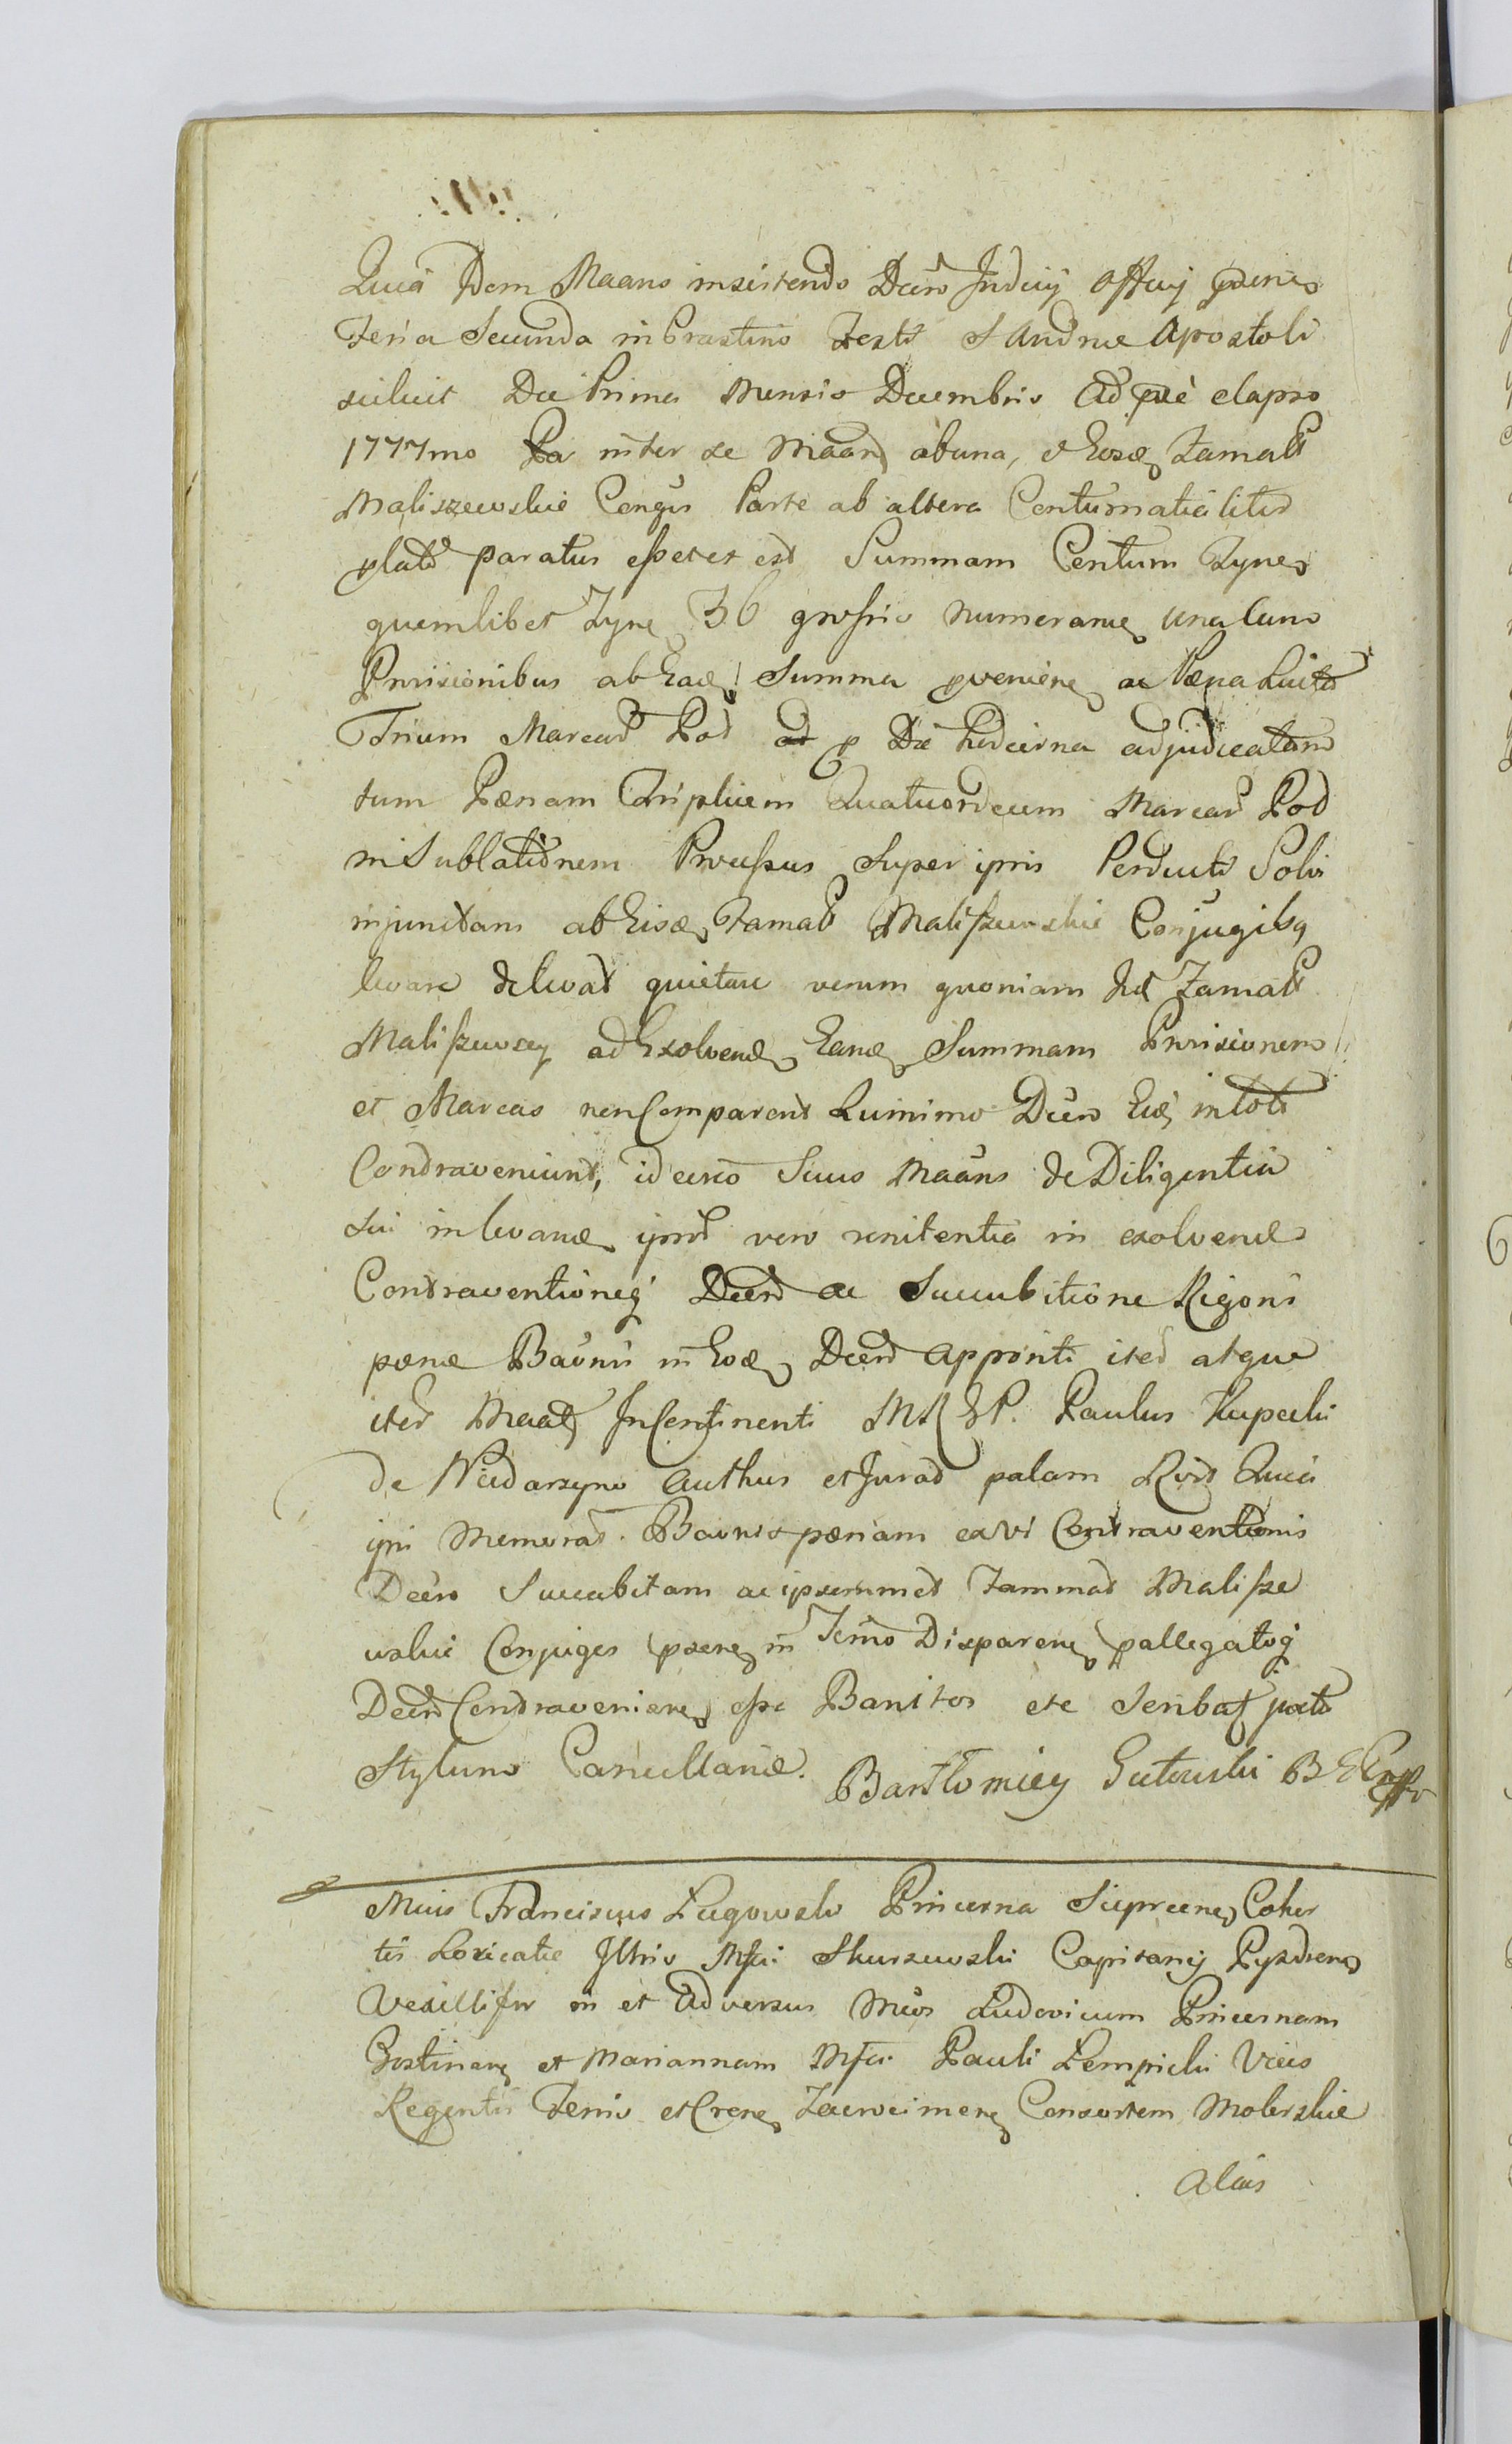 Quia Idem Maans insistendo Decro Judicij Officij pntis
Feria Secunda in Crastino Festi S Andreae Apostoli
scilicet Die Prima Mensis Decembris Ad pre elapso
1777mo inter se Maan ab una, et Eosde Famat
Maliszewskie Conges Parte ab altera Contumatialiter
plato paratus esset et est Summam Centum Tynf
quemlibet Tynf 36 grossis numerando una cum
Provisionibus ab Eade Summa proveniene ac Paena Luita
Trium Marcar Pol p Die hodierna adjudicatam
tum Paenam Triplicem Quatuordecim Marcar Pol
in Sublationem Processus Super ipsis Perducti Solvi
injunctam ab Eisde Famat Maliszewskie Conjugibq
levare de levat quietare verum quoniam hi Famat
Maliszewscy ad Exolvend Eand Summam Provisionem
et Marcas non Comparent Quinimo Decro Eid in toto
Contraveniunt, id circo Suus Maans de Diligentia
sui in levand ipsor vero renitentia in exolvend
Contraventioneq Decro ac Succubitione Rigoris
paenae Bannii in Eode Decro appositi iter atque
iter Maat In Continenti M R G P. Paulus Kupecki
de Nadarzyno Authus et Jurat palam Rvit Quia
ipsi Memorat. Bannis paenam ex vi Contraventionis
Decro Succubitam ac ipsemmet Fammat Malisze
wskie Conjuges psente in Termo Disparene pallegatoq
Decro Contraveniene esse Banitos etc Scribat juxta
Stylum Cancellariae. Bartłomiey Gutowski B G Capp
Mcus Franciscus Ługowski Pincerna Cohor
tis Loricatae Illris Mfci Skurzewski Capitanej Pyzdrens
Vexillifer in et Adversus Mcos Ludovicum Pincernam
Gostinens et Mariannam Mfci Pauli Łempicki Vices
Regentis Terrio et Crens Zacroczimens Consortem Molerskie
alias